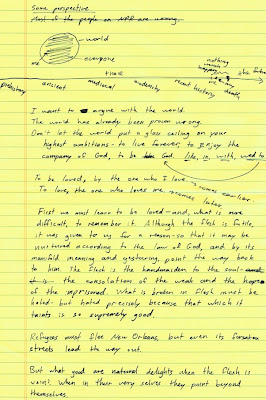 Some perspective
Most of the people on NPR are wrong.
world
everyone
me
time
nothing
much
happens
me
my
death
prehistory
ancient
medieval
modernity
recent history
I want to argue with the world.
The world has already been proven wrong.
Don't let the world put a glass ceiling on your
highest ambitions - to live forever, to enjoy the
company of God, to be God. Like, in, with, wed to
To be loved, by the one who I love. comes earlier.
To love, the one who loves me. comes later
First we must learn to be loved - and, what is more
difficult, to remember it. Although the flesh is futile,
it was given to us for a reason - so that it may be
nurtured according to the law of God, and by its
manifold meaning and gesturing, point the way back
to him. The flesh is the handmaiden to the soul
it is the consolation of the weak and the hope
of the imprisoned. What is broken in flesh must be
hated - but hated precisely because that which it
taints is so supremely good.
Refugees must flee New Orleans, but even its forsaken
streets lead the way out.
But what good are natural delights when the flesh is
worn? When in their very selves they point beyond
themselves.